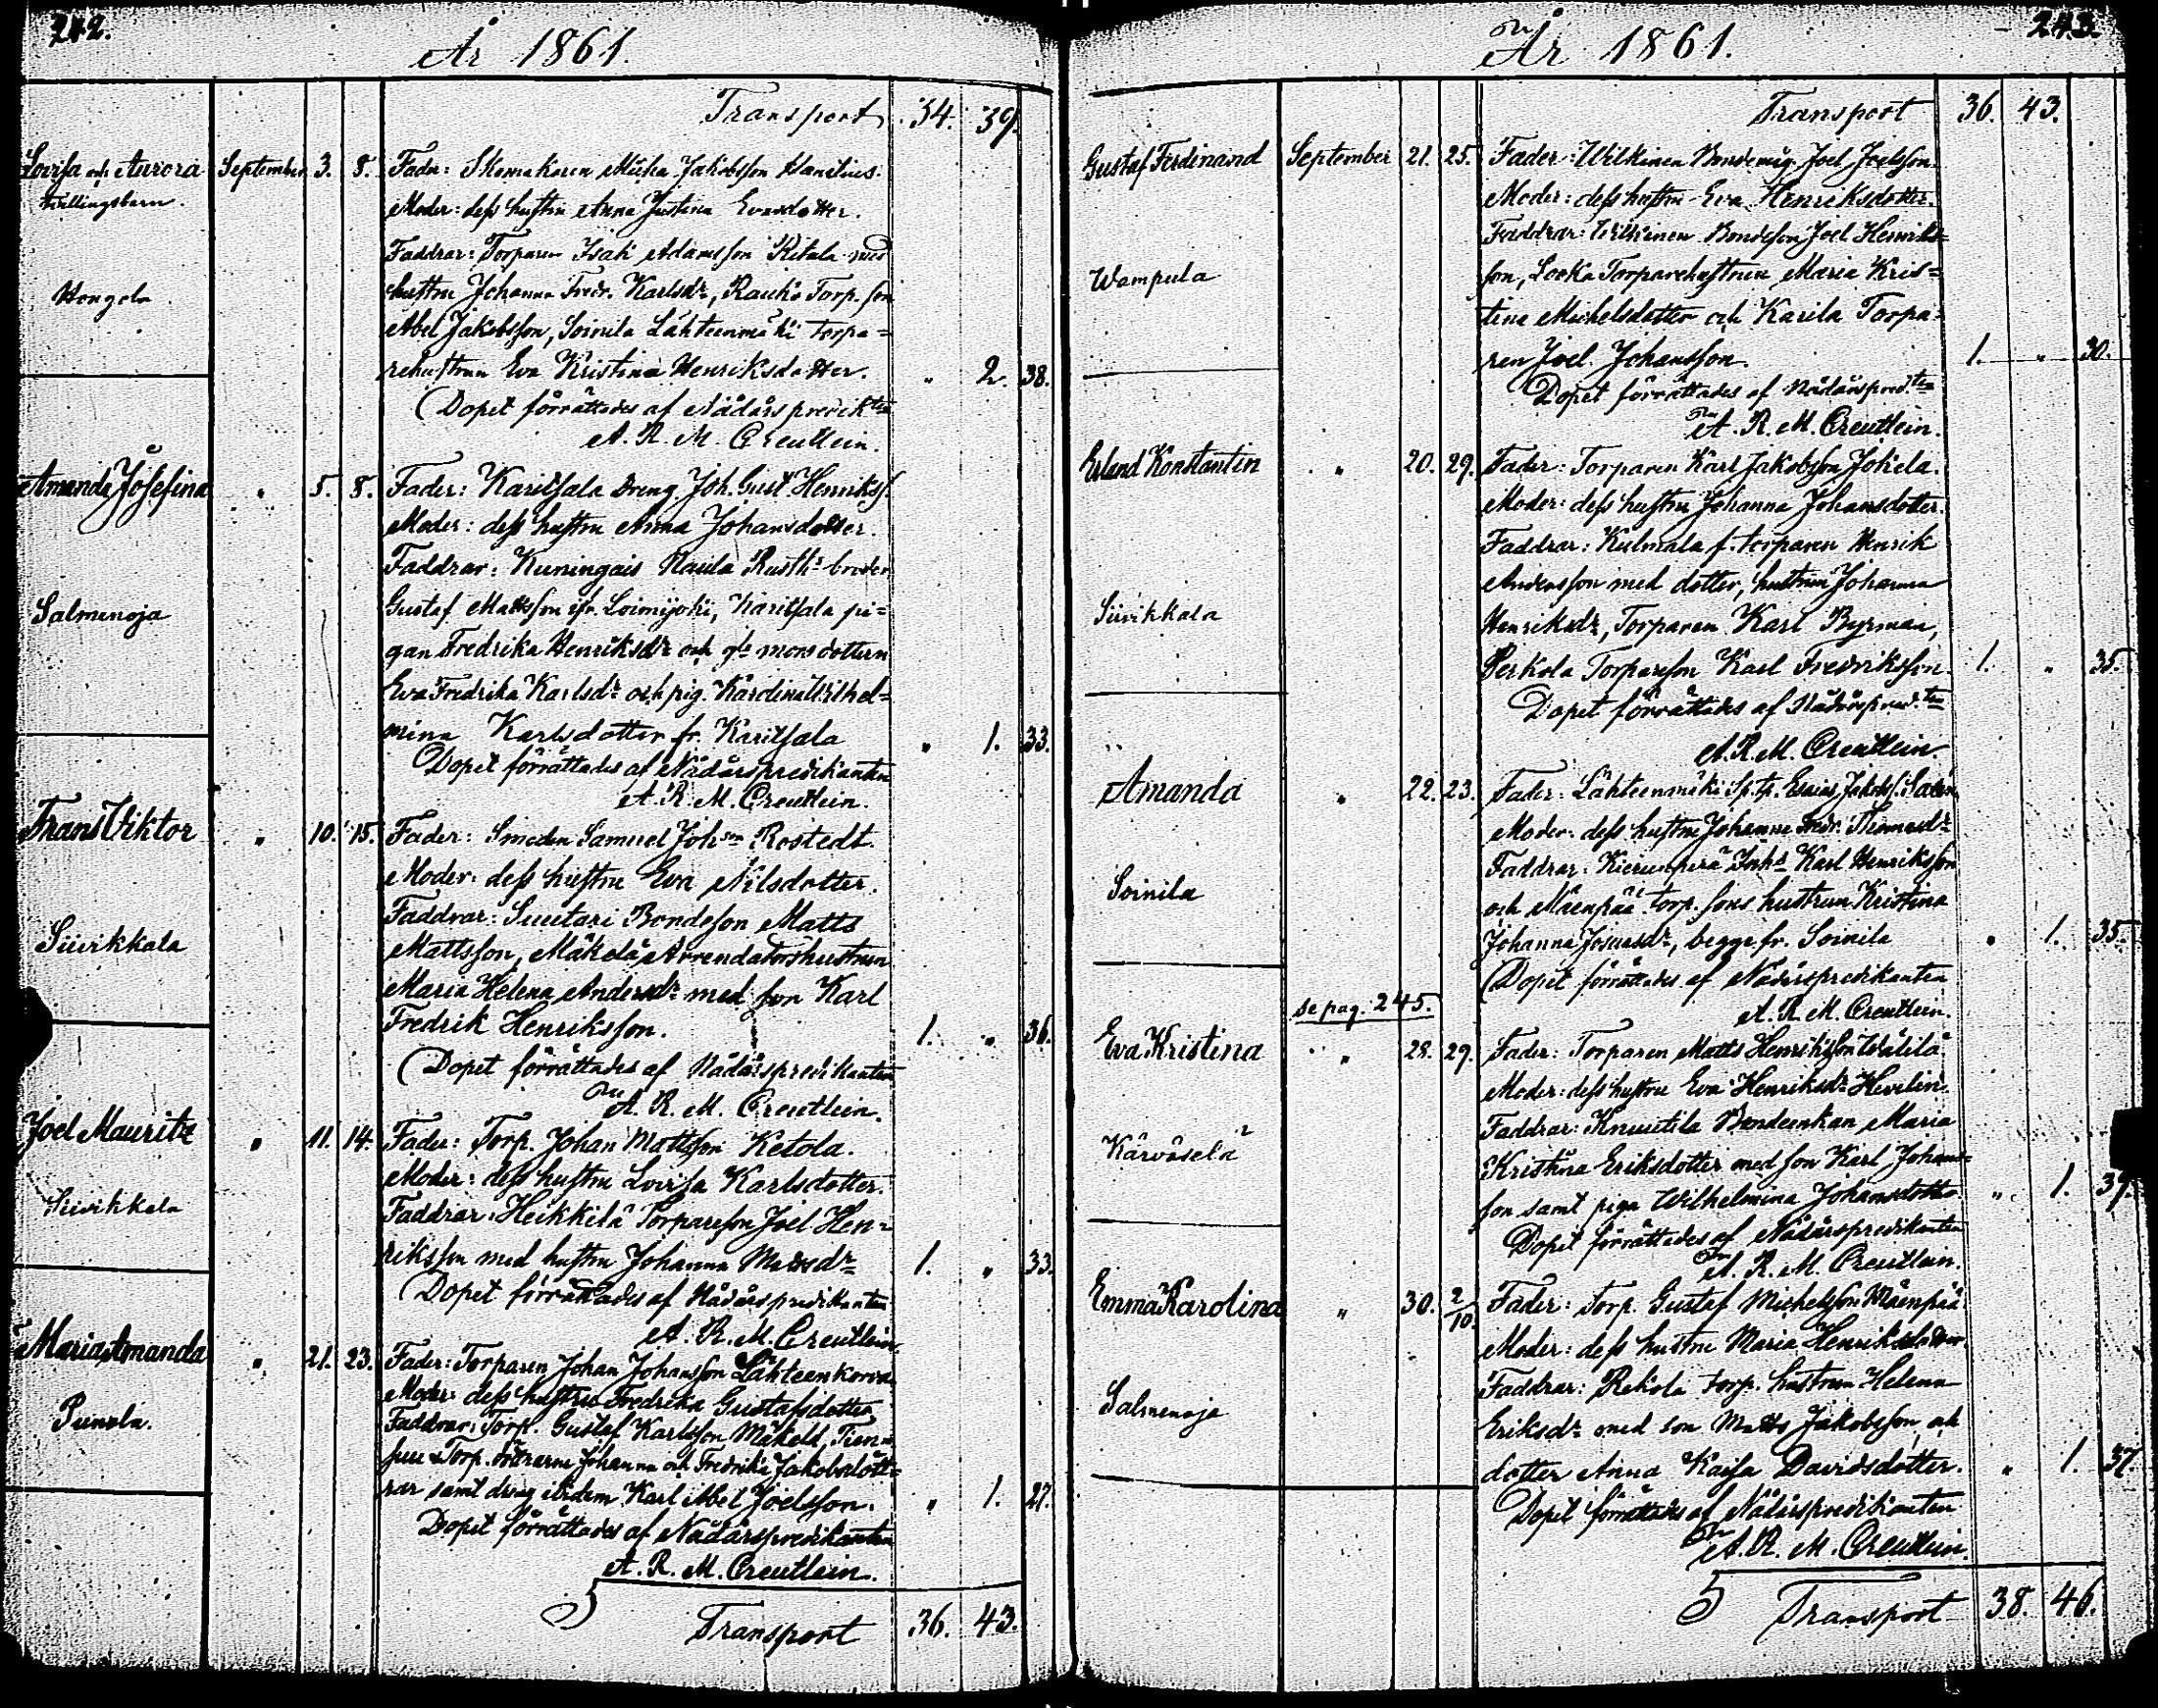 242.
År 1861.
Transport 34. 39.
Lovisa och Aurora September 3. 8. Fader: Skomakaren Mickel Jakobsson
tvillingsbarn.
Moder: dess hustru Anna Justina Evasdotter.
Faddrar: Torparen Isak Adamsson Ritala med
Hongola
hustru Johanna Fredr. Karlsdr, Rauko Torp. son
Abel Jakobsson, Soinila Lähteenmäki Torpa=
rehustrun Eva Kristina Henriksdotter. " 2. 38.
Dopet förrättades af Nådårspredikten
A. R. M. Creutlein.
Amanda Josefina " 5. 8. Fader: Karitsala Dreng Joh. Gust. Henrikss.
Moder: dess hustru Anna Johansdotter.
Faddrar: Kuningais Naula Rusth. broder
Gustaf Mattsson ifr. Loimijoki, Karitsala pi=
Salmenoja
gan Fredrika Henriksdr och mors dottern
Eva Fredrika Karlsdr och pig. Karolina Wilhel=
mina Karlsdotter fr. Karitsala " 1. 33.
Dopet förrättades af Nådårspredikanten
A. R. M. Creutlein.
Frans Viktor " 10. 15. Fader: Smeden Samuel Johsn Rostedt.
Moder: dess hustru Eva Nilsdotter.
Faddrar: Suutari Bondeson Matts
Siivikkala
Mattsson, Mäkelä Arrendatorshustrun
Maria Helena Andersdr med son Karl
Fredrik Henriksson. 1. " 36.
Dopet förrättades af Nådårspredikanten
A. R. M. Creutlein.
Joel Mauritz " 11. 14. Fader: Torp. Johan Mattsson Ketola.
Moder: dess hustru Lovisa Karlsdotter.
Siivikkala
Faddrar: Heikkilä Torpareson Joel Hen=
riksson med hustru Johanna Mattsdr 1. " 33.
Dopet förrättades af Nådårspredikanten
A. R. M. Creutlein.
Maria Amanda " 21. 23. Fader: Torparen Johan Johansson Lähteenkorva
Moder: dess hustru Fredrika Gustafsdotter
Punola.
Faddrar: Torp. Gustaf Karlsson Mäkelä,
Torp. Johanna och Fredrika Jakobsdött=
rar samt dreng ibidem Karl Abel Joelsson. " 1. 27.
Dopet förrättades af Nådårspredikanten
A. R. M. Creutlein.
Transport 36. 43.
243.
År 1861.
Transport 36. 43.
Gustaf Ferdinand September 21. 25. Fader: Wilkinen Bondemåg. Joel Joelsson.
Moder: dess hustru Eva Henriksdotter.
Faddrar: Wilkinen Bondeson Joel Henriks=
Wampula
son, Looka Torparehustrun Maria Kris=
tina Michelsdotter och Karila Torpa=
ren Joel Johansson. 1. " 30.
Dopet förrättades af Nådårspred.ten
A. R. M. Creutlein.
Erland Konstantin " 20. 29. Fader: Torparen Karl Jakobsson Jokela.
Moder: dess hustru Johanna Johansdotter.
Faddrar: Kulmala f. torparen Henrik
Andersson med dotter, hustrun Johanna
Siivikkala
Henriksdr, Torparen Karl Byman,
Perkola Torpareson Karl Fredriksson. 1. " 35.
Dopet förrättades af Nådårspred.ten
A. R. M. Creutlein.
Amanda " 22. 23. Fader: Lähteenmäki Sp. tp. Esaias Jakobss. Salin
Moder: dess hustru Johanna Fredr. Thomasdr
Faddrar: Kierunperä Inhs Karl Henriksson
Soinila
och Mäenpää torp. sons hustrun Kristina
Johanna Josuasdr, begge fr. Soinila " 1. 35.
Dopet förrättades af Nådårspredikanten
A. R. M. Creutlein.
se pag. 245.
Eva Kristina " 28. 29. Fader: Torparen Matts Henriksson Wälilä.
Moder: dess hustru Eva Henriksdr Hevelin.
Faddrar: Knuutila Bondeenkan Maria
Kärväselä
Kristina Eriksdotter med son Karl Johans=
son samt piga Wilhelmina Johansdotter. " 1. 37.
Dopet förrättades af Nådårspredikanten
A. R. M. Creutlein.
Emma Karolina " 30. 2/10. Fader: Torp. Gustaf Michelsson Mäenpää
Moder: dess hustru Maria Henriksdotter.
Faddrar: Rekola torp. hustrun Helena
Salmenoja
Eriksdr med son Matts Jakobsson, och
dotter Anna Kaisa Davidsdotter. " 1. 37.
Dopet förrättades af Nådårspredikanten
A. R. M. Creutlein.
Transport 38. 46.